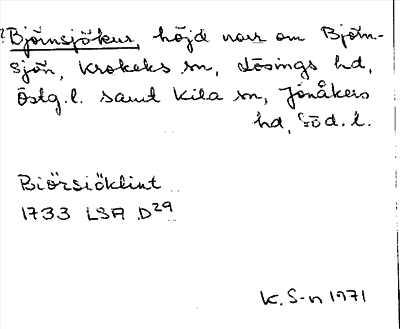 ?Björnsjökur, höjd norr om Björn-
sjön, Krokeks sn, Lösings hd,
Östg.l. samt Kila sn, Jönåkers
hd, Söd.l.
Biörsiöklint
1733 LSA D29
K. S-n 1971